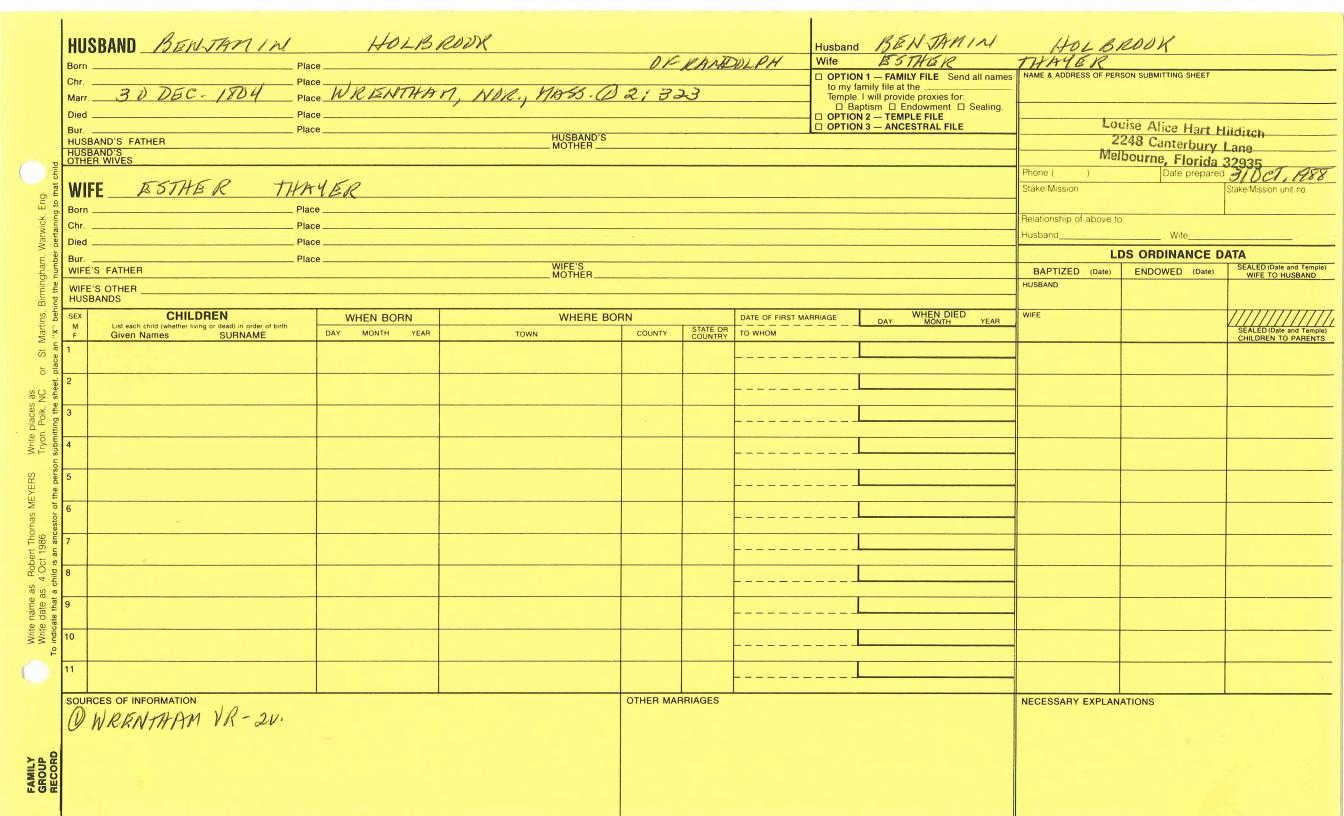 HUSBAND BENJAMIN HOLBROOK
Born Place OF RANDOLPH
Chr. Place
Marr 30 DEC. 1804 Place WRENTHAM, NOR., MASS. ① 2; 323
Died Place
Bur. Place
HUSBAND'S FATHER HUSBAND'S MOTHER
HUSBAND'S OTHER WIVES
Husband BENJAMIN HOLBROOK
Wife ESTHER THAYER
☐ OPTION 1 — FAMILY FILE Send all names
to my family file at the
Temple. I will provide proxies for:
☐ Baptism ☐ Endowment ☐ Sealing.
☐ OPTION 2 — TEMPLE FILE
☐ OPTION 3 — ANCESTRAL FILE
NAME & ADDRESS OF PERSON SUBMITTING SHEET
Louise Alice Hart Hilditch
2248 Canterbury Lane
Melbourne, Florida 32935
Phone ( ) Date prepared 31 OCT, 1988
Stake/Mission Stake/Mission unit no.
Relationship of above to
Husband Wife
WIFE ESTHER THAYER
Born Place
Chr. Place
Died Place
Bur. Place
WIFE'S FATHER WIFE'S MOTHER
WIFE'S OTHER HUSBANDS
LDS ORDINANCE DATA
BAPTIZED (Date) ENDOWED (Date) SEALED (Date and Temple) WIFE TO HUSBAND
HUSBAND
WIFE
SEALED (Date and Temple) CHILDREN TO PARENTS
SEX M F
CHILDREN
List each child (whether living or dead) in order of birth
Given Names SURNAME
WHEN BORN
DAY MONTH YEAR
WHERE BORN
TOWN COUNTY STATE OR COUNTRY
DATE OF FIRST MARRIAGE
TO WHOM
WHEN DIED
DAY MONTH YEAR
1
2
3
4
5
6
7
8
9
10
11
SOURCES OF INFORMATION
① WRENTHAM VR-2v.
OTHER MARRIAGES
NECESSARY EXPLANATIONS
Write name as Robert Thomas MEYERS Write places as Tryon, Polk, NC or St. Martins, Birmingham, Warwick, Eng.
Write date as 4 Oct 1986
To indicate that a child is an ancestor of the person submitting the sheet, place an "X" behind the number pertaining to that child
FAMILY
GROUP
RECORD